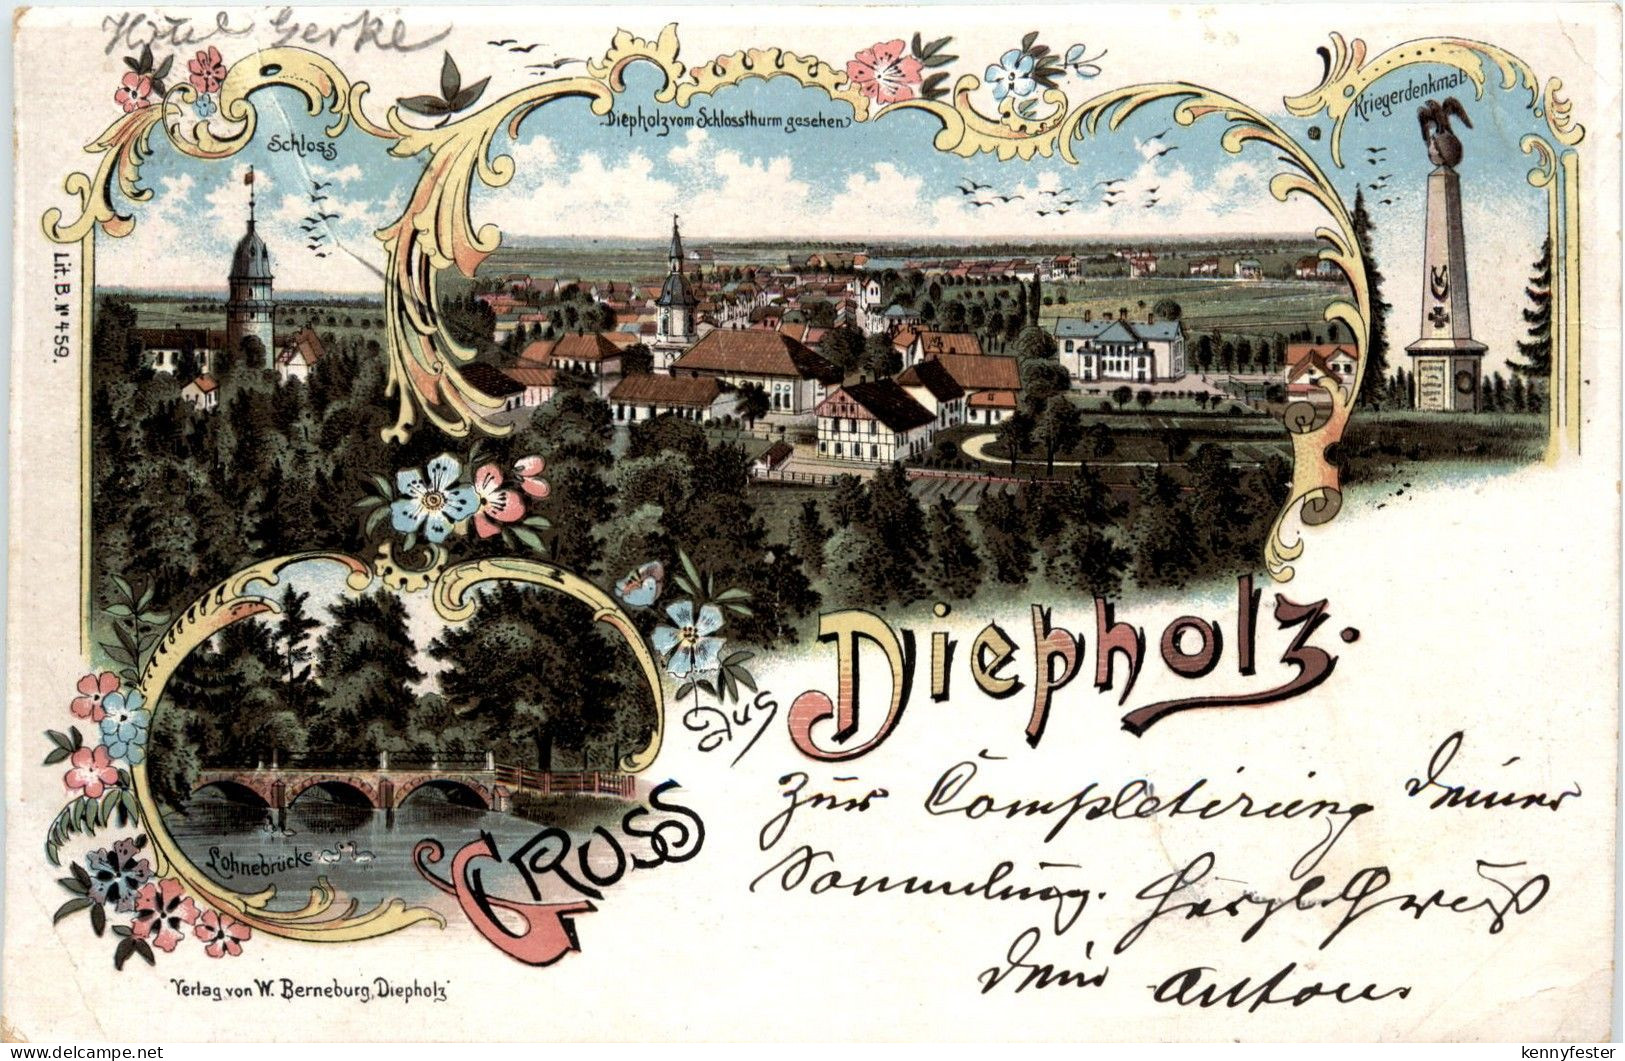 Hotel Gerke
Schloss
Diepholz vom Schlossthurm gesehen
Kriegerdenkmal
Lit. B. Nº 459.
Lohnebrücke
Gruss aus Diepholz.
Zur Completirung deiner
Sammlung. Herzl. Gruß
dein Anton.
Verlag von W. Berneburg, Diepholz
delcampe.net
kennyfester